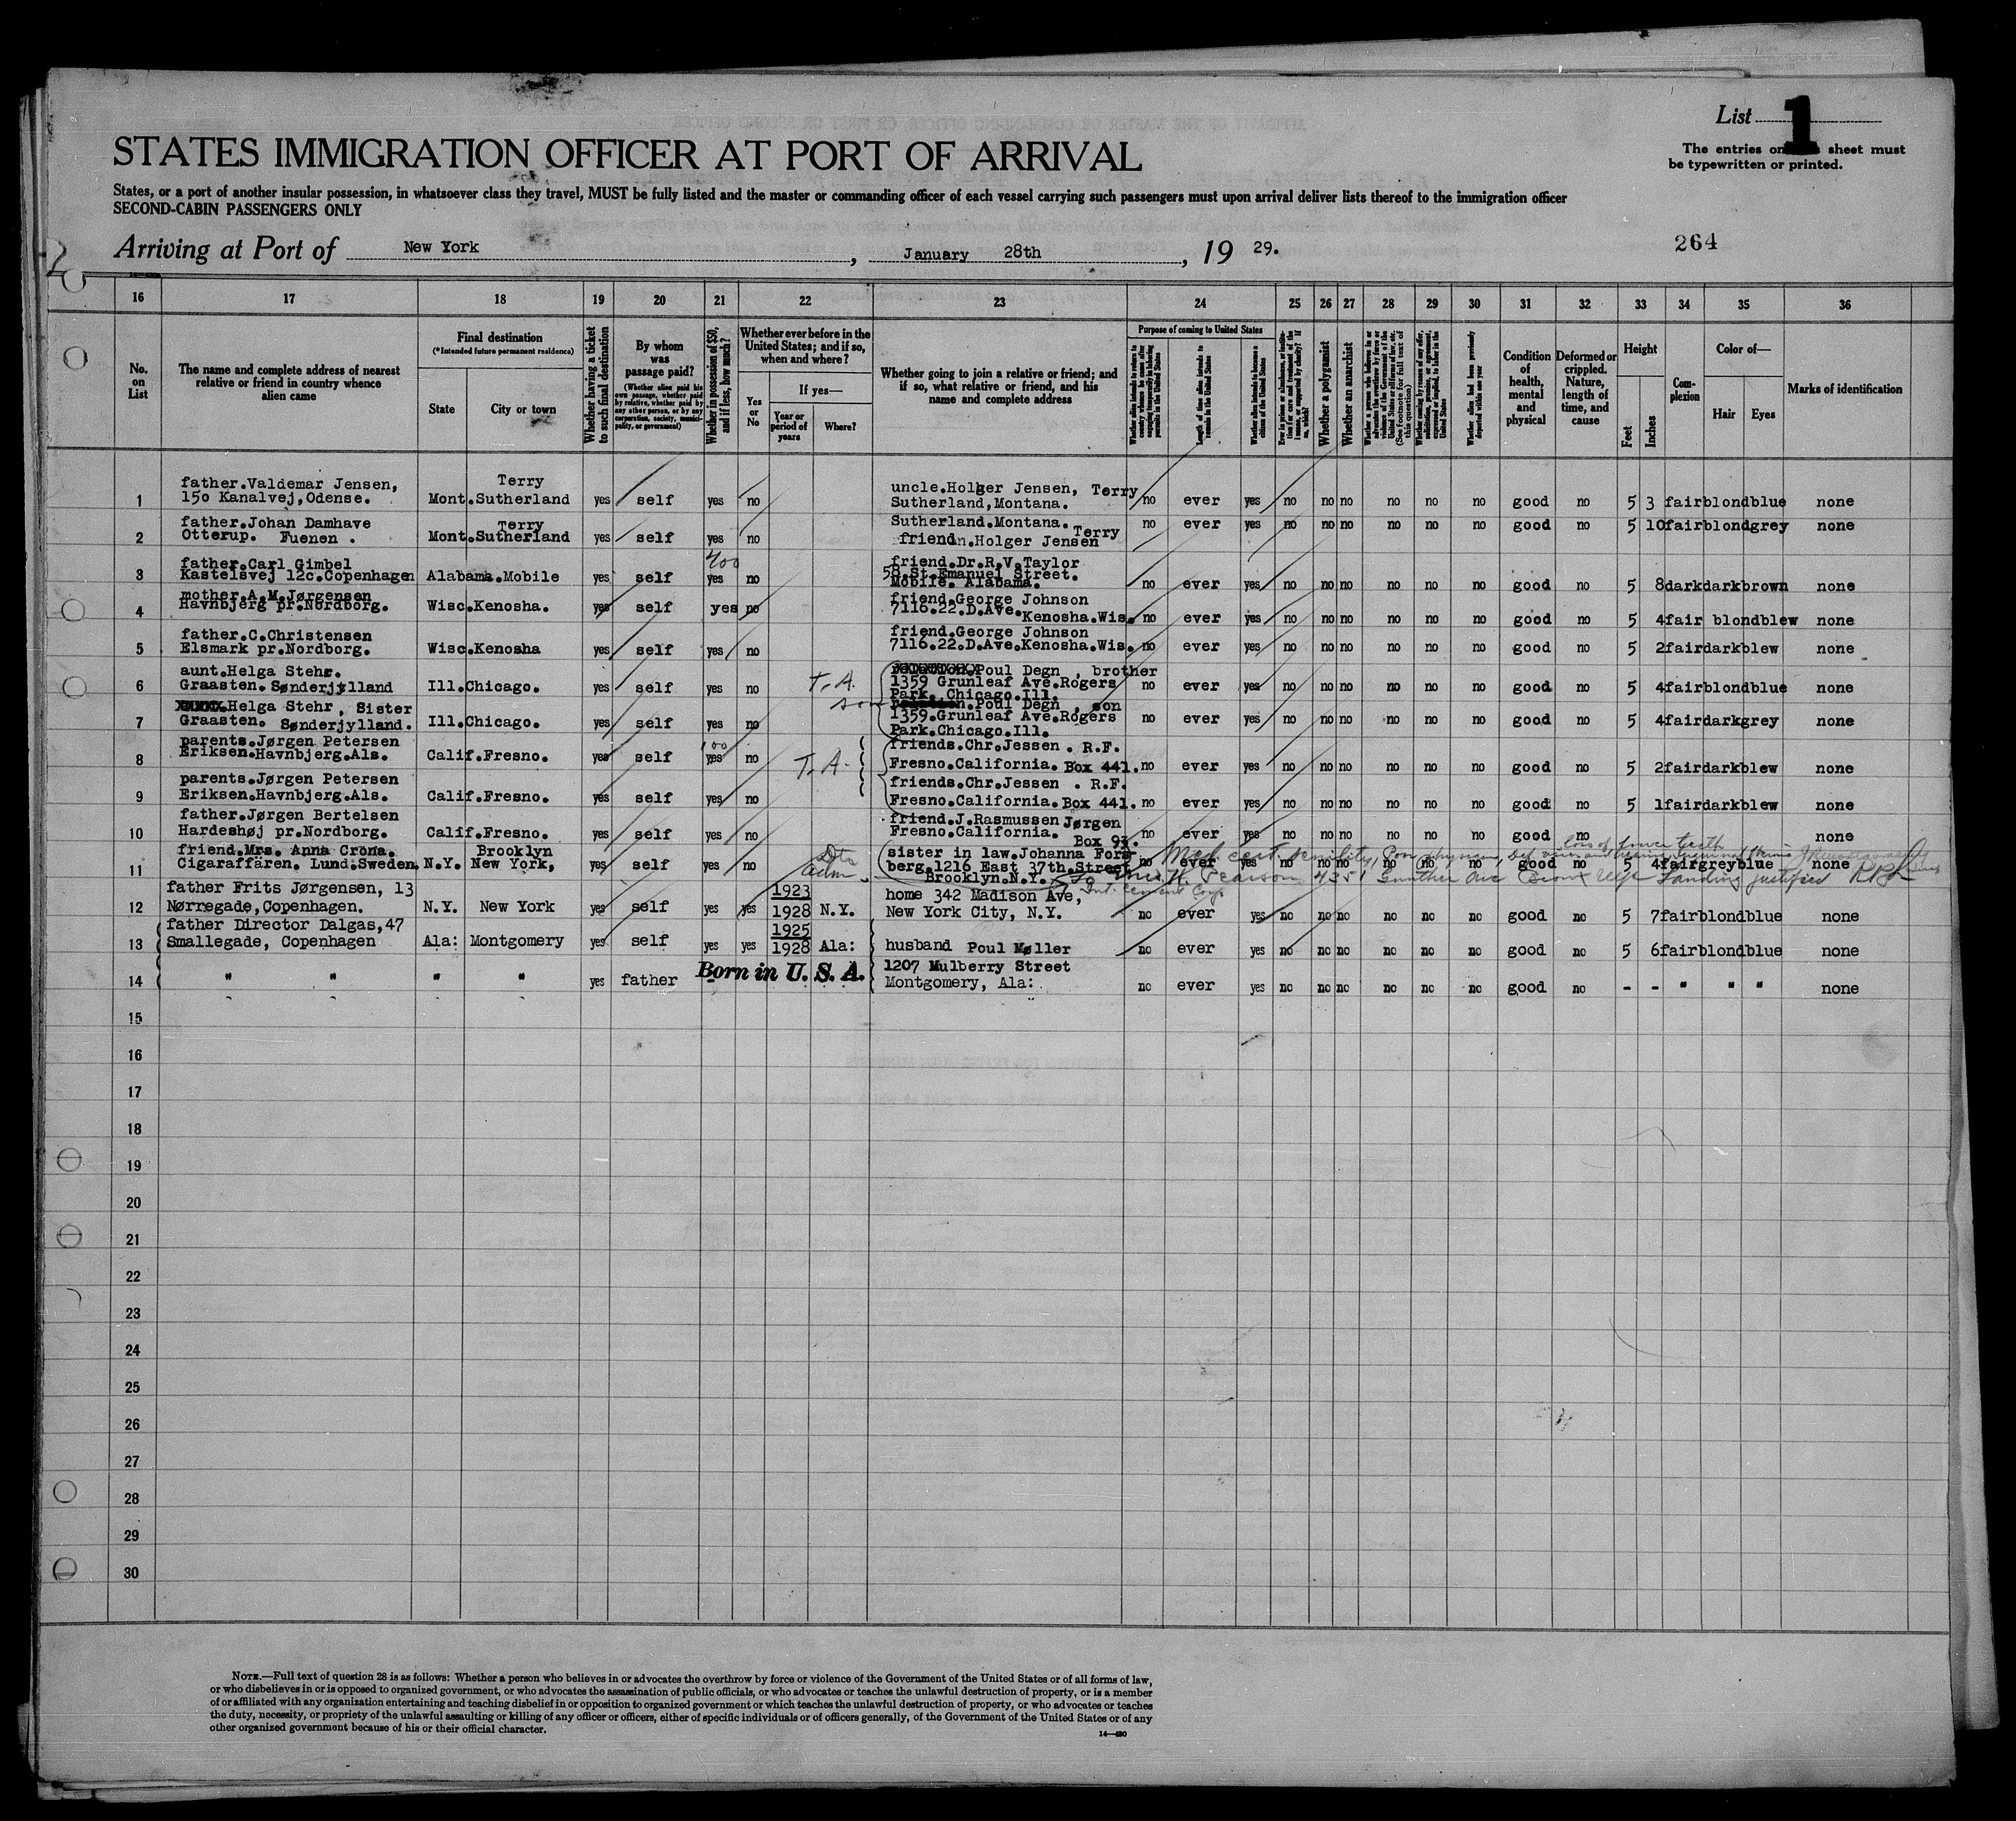 List 1
The entries on sheet must
be typewritten or printed.
STATES IMMIGRATION OFFICER AT PORT OF ARRIVAL
States, or a port of another insular possession, in whatsoever class they travel, MUST be fully listed and the master or commanding officer of each vessel carrying such passengers must upon arrival deliver lists thereof to the immigration officer
SECOND-CABIN PASSENGERS ONLY
Arriving at Port of New York, January 28th, 19 29.
264
16 17 18 19 20 21 22 23 24 25 26 27 28 29 30 31 32 33 34 35 36
No. on List
The name and complete address of nearest relative or friend in country whence alien came
Final destination
(*Intended future permanent residence)
State
City or town
Whether having a ticket to such final destination
By whom was passage paid?
(Whether alien paid his own passage, whether paid by relative, whether paid by any other person, or by any corporation, society, municipality, or government)
Whether in possession of $50, and if less, how much?
Whether ever before in the United States; and if so, when and where?
Yes or No
If yes—
Year or period of years
Where?
Whether going to join a relative or friend; and if so, what relative or friend, and his name and complete address
Purpose of coming to United States
Length of time alien intends to remain in the United States
Whether alien intends to become a citizen of the United States
Whether a polygamist
Whether an anarchist
Whether alien had been previously deported within one year
Condition of health, mental and physical
Deformed or crippled. Nature, length of time, and cause
Height
Feet
Inches
Complexion
Color of—
Hair
Eyes
Marks of identification
1 father.Valdemar Jensen, 150 Kanalvej,Odense. Mont. Terry Sutherland yes self yes no uncle.Holger Jensen, Terry Sutherland,Montana. no ever yes no no no no no no good no 5 3 fair blond blue none
2 father.Johan Damhave Otterup. Fuenen . Mont. Terry Sutherland yes self yes no Sutherland.Montana. Terry friendn.Holger Jensen no ever yes no no no no no no good no 5 10 fair blond grey none
3 father.Carl Gimbel Kastelsvej 12c.Copenhagen Alabama.Mobile yes self 400 yes no friend.Dr.R.V.Taylor 58.St.Emanuel Street. Mobile. Alabama. no ever yes no no no no no no good no 5 8 dark dark brown none
4 mother.A.M.Jørgensen Havnbjerg pr.Nordborg. Wisc.Kenosha. yes self yes no friend.George Johnson 7116.22.D.Ave. Kenosha.Wis. no ever yes no no no no no no good no 5 4 fair blond blew none
5 father.C.Christensen Elsmark pr.Nordborg. Wisc.Kenosha yes self yes no friend.George Johnson 7116.22.D.Ave.Kenosha.Wis. no ever yes no no no no no no good no 5 2 fair dark blew none
6 aunt.Helga Stehr. Graasten. Sønderjylland Ill.Chicago. yes self yes no T.A. Poul Degn , brother 1359 Grunleaf Ave.Rogers Park. Chicago.Ill. no ever yes no no no no no no good no 5 4 fair blond blue none
7 Helga Stehr, Sister Graasten. Sønderjylland. Ill.Chicago. yes self yes no son Poul Degn , son 1359.Grunleaf Ave.Rogers Park.Chicago.Ill. no ever yes no no no no no no good no 5 4 fair dark grey none
8 parents.Jørgen Petersen Eriksen.Havnbjerg.Als. Calif.Fresno. yes self 100 yes no T.A. friends.Chr.Jessen . R.F. Fresno.California. Box 441. no ever yes no no no no no no good no 5 2 fair dark blew none
9 parents.Jørgen Petersen Eriksen.Havnbjerg.Als. Calif.Fresno. yes self yes no friends.Chr.Jessen . R.F. Fresno.California. Box 441. no ever yes no no no no no no good no 5 1 fair dark blew none
10 father.Jørgen Bertelsen Hardeshøj pr.Nordborg. Calif.Fresno. yes self yes no friend.J.Rasmussen Jørgen Fresno.California. Box 93. no ever yes no no no no no no good no none
11 friend.Mrs. Anna Crona. Cigaraffären. Lund.Sweden. N.Y. Brooklyn New York, yes self yes no adm sister in law.Johanna Forsberg.1216 East 37th.Street Brooklyn.N.Y. no ever yes no no no no no no good no 5 4 fair grey blue none
Med cert senility
loss of teeth
Pearson 4351 Gunther Ave Bronx Landing justified
12 father Frits Jørgensen, 13 Nørregade,Copenhagen. N.Y. New York yes self yes yes 1923 1928 N.Y. home 342 Madison Ave, New York City, N.Y. no ever yes no no no no no no good no 5 7 fair blond blue none
13 father Director Dalgas,47 Smallegade, Copenhagen Ala: Montgomery yes self yes yes 1925 1928 Ala: husband Poul Møller no ever yes no no no no no no good no 5 6 fair blond blue none
14 " " " " yes father Born in U. S. A. 1207 Mulberry Street Montgomery, Ala: no ever yes no no no no no no good no - - " " " none
15
16
17
18
19
20
21
22
23
24
25
26
27
28
29
30
NOTE.—Full text of question 28 is as follows: Whether a person who believes in or advocates the overthrow by force or violence of the Government of the United States or of all forms of law,
or who disbelieves in or is opposed to organized government, or who advocates the assassination of public officials, or who advocates or teaches the unlawful destruction of property, or is a member
of or affiliated with any organization entertaining and teaching disbelief in or opposition to organized government or which teaches the unlawful destruction of property, or who advocates or teaches
the duty, necessity, or propriety of the unlawful assaulting or killing of any officer or officers, either of specific individuals or of officers generally, of the Government of the United States or of any
other organized government because of his or their official character.
14—430